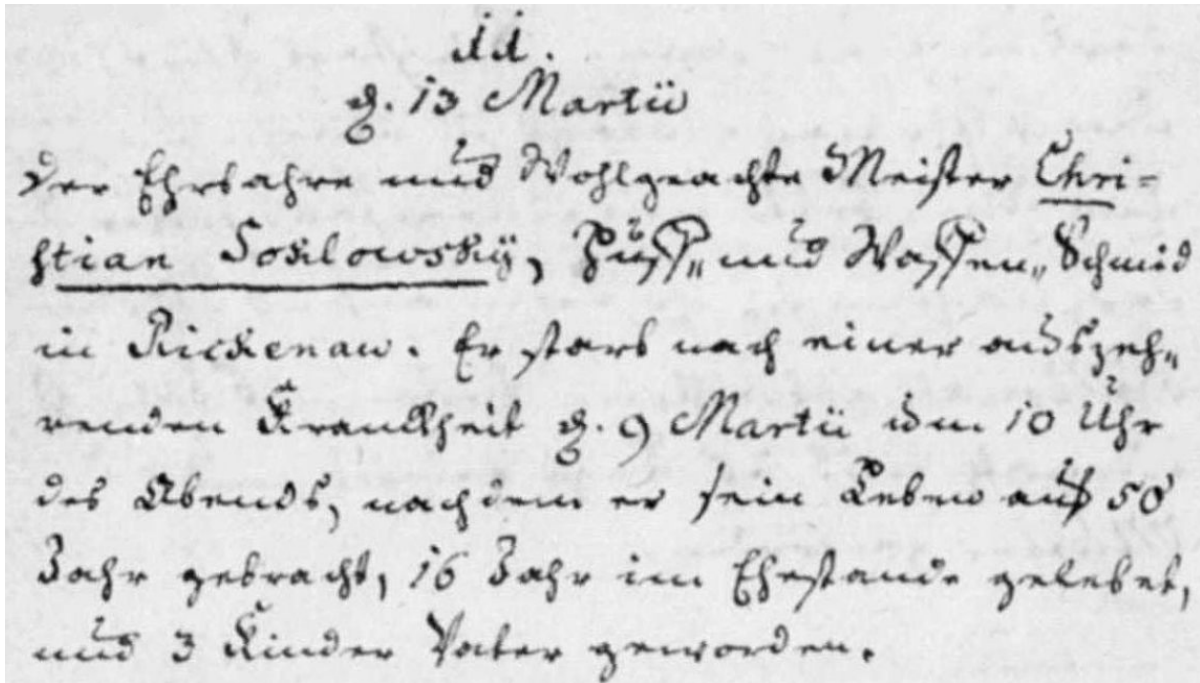 11.
d. 13 Martii
Der Ehrbahre und Wohlgeachte Meister Chri=
stian Soklowsky, Huff„ und Waffen„Schmid
in Rickenau. Er starb nach einer auszeh„
renden Krankheit d. 9 Martii um 10 Uhr
des Abends, nachdem er sein Leben auf 50
Jahr gebracht, 16 Jahr im Ehestande gelebet,
und 3 Kinder Vater geworden.